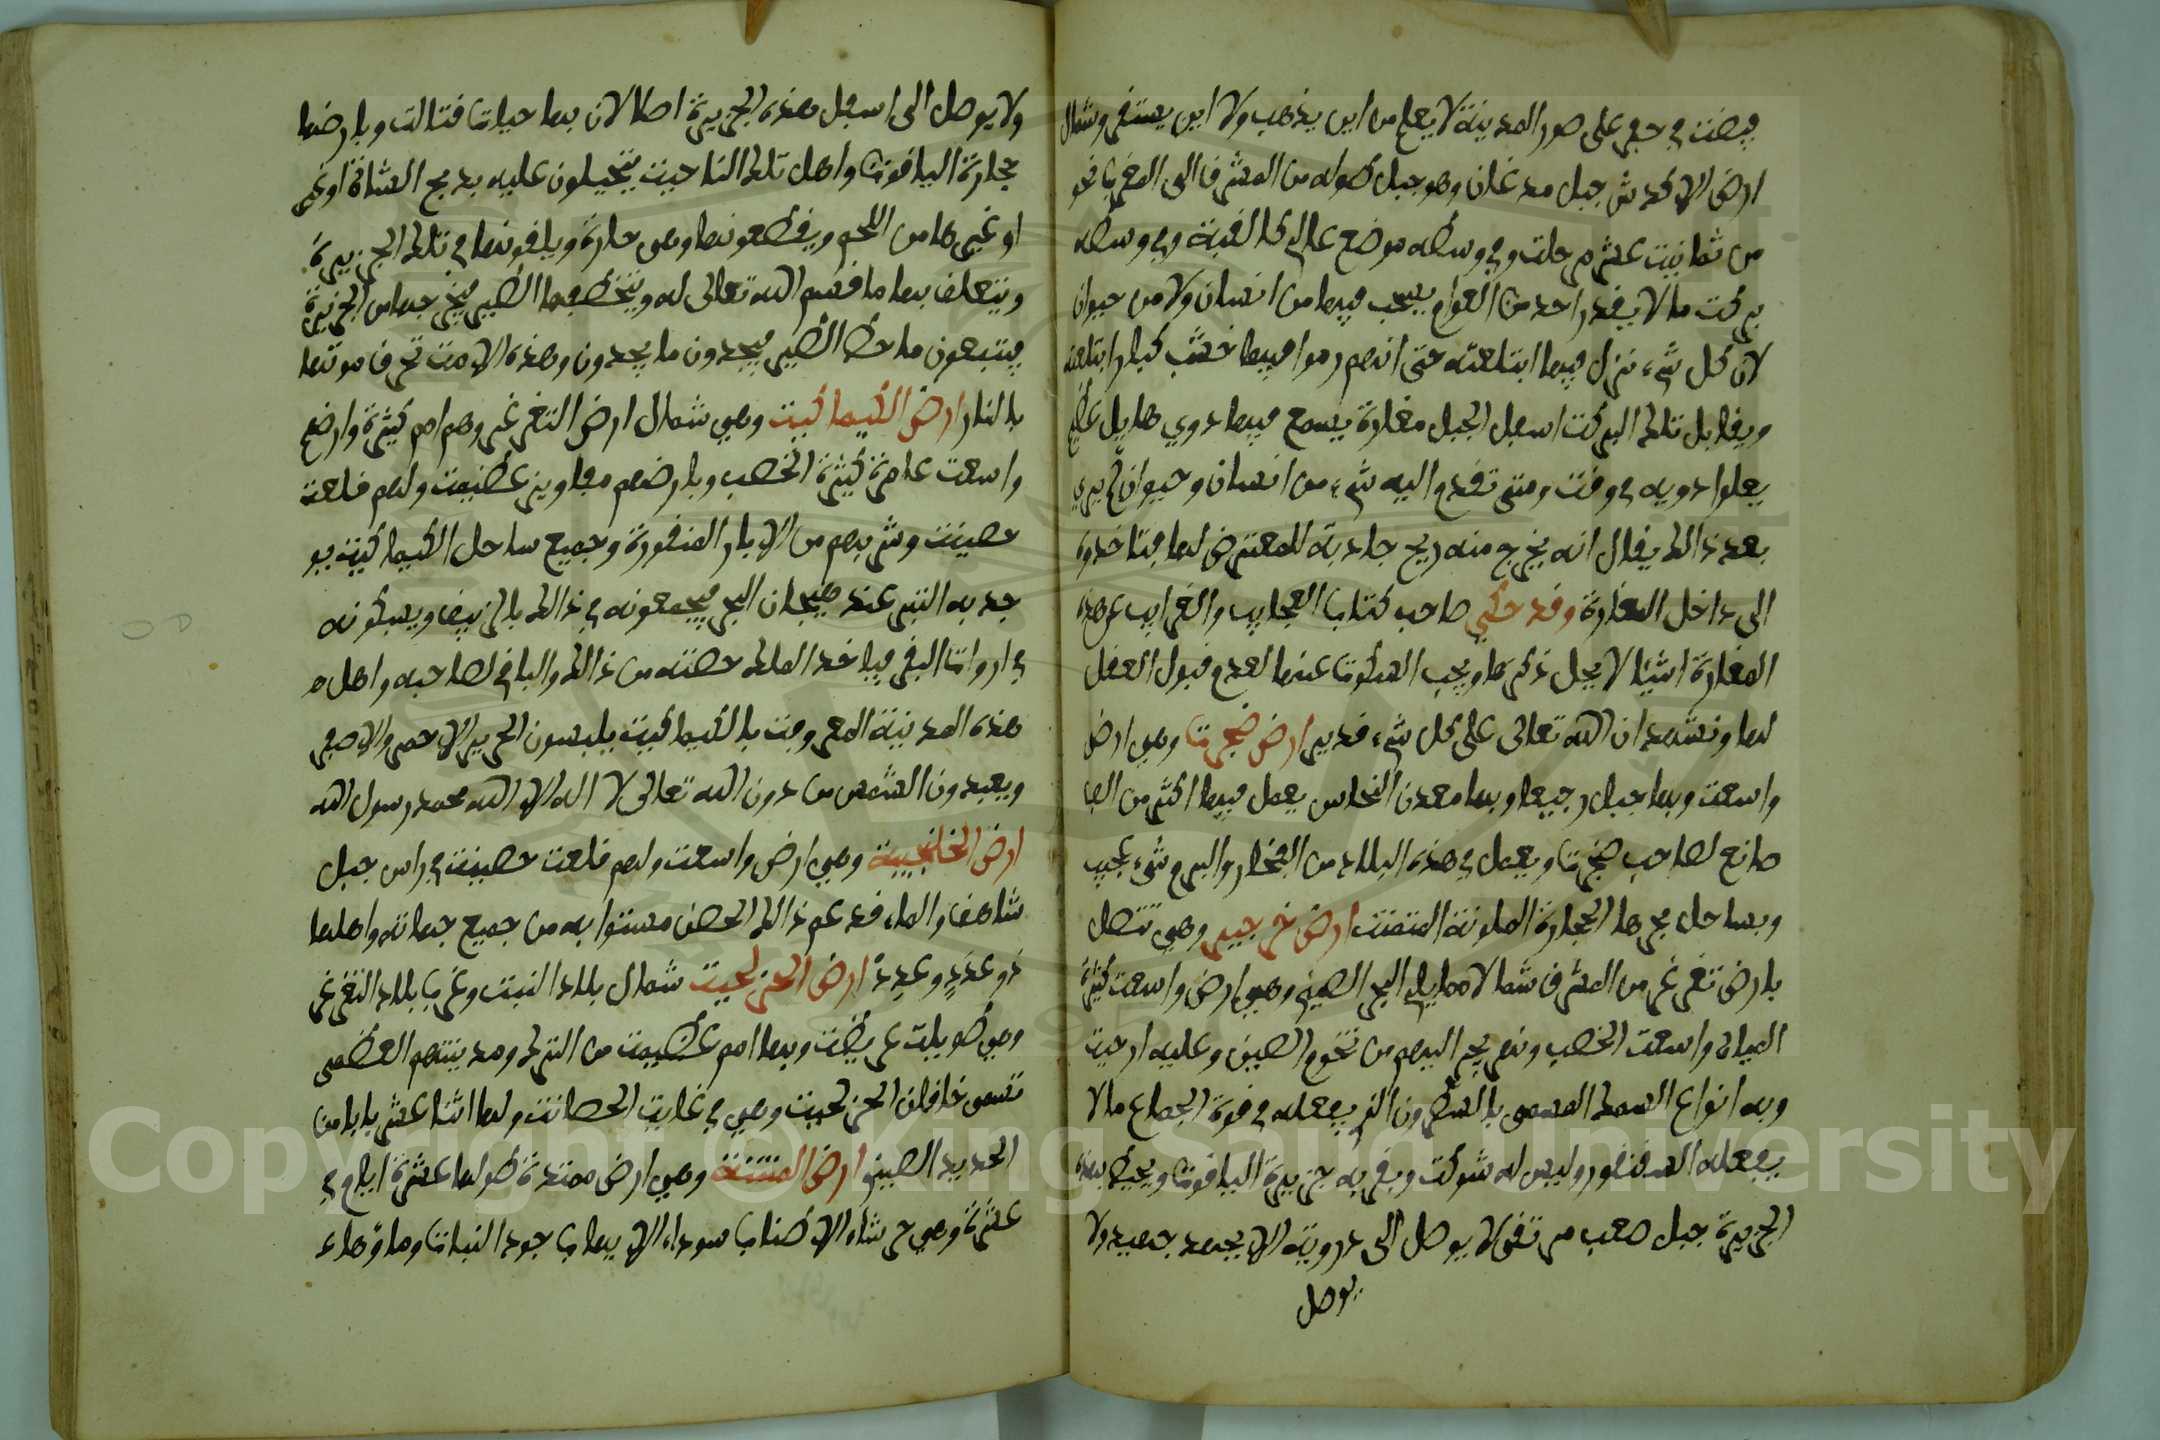 فيضت في حفر على صور المدينة لا يعلم من اين يذهب ولا اين يستقر وشمال
ارض الاكدش جبل مدغان وهو جبل طوله من المشرق الى المغرب نحو
من ثمانية عشر مرحلة وفي وسطه موضع عال كالقبة وفي وسطه
بركة ماء لا يقدر احد من العوام يسبح فيها من انسان ولا من حيوان
لان كل شيء نزل فيها ابتلعته حتى انهم رموا فيها خشب كبار ابتلعته
ويقابل تلك البركة اسفل الجبل مغارة يسمع فيها دوي هايل عظيم
يعلوا دويه في وقت ومتى تقدم اليه شيء من انسان وحيوان لم يرى
بعد ذالك يقال انه يخرج منه ريح جاذبة للمعترض لها فتاخذه
الى داخل المغارة وقد حكي صاحب كتاب العجايب والغرايب عن هذه
المغارة اشيا لا يحل ذكرها ويجب السكوت عنها لعدم قبول العقل
لها ونشهد ان الله تعالى على كل شيء قدير ارض نجرت وهي ارض
واسعة وبها جبل رجيعا وبها معدن النحاس يعمل فيها اكثر من الف
صانع لصاحب نجرت ويعمل في هذه البلاد من الفخار والبر وشيء عجيب
وبساحل بحرها الحجارة الملونة المتمنة ارض خرجير وهي تتصل
بارض تغرغر من المشرق شمالا مما يلي البحر الصيني وهي ارض واسعة كثيرة
المياه واسعة الخصب ونهر يجر اليهم من تخوم الصين وعليه ارحية
وبه انواع السمك المسمى بالسطرون الذي يفعله في قوة الجماع ما لا
يفعله السقنقور وليس له شوكة وبقربه جزيرة الياقوت ويحيط بهذه
الجزيرة جبل صعب مرتقى لا يوصل الى ذروته الا بجهد جهيد ولا
يوصل
ولا يوصل الى اسفل هذه الجزيرة اصلا لان بها حيات قتالة وبارضها
حجارة الياقوت واهل تلك الناحية يتحيلون عليه بذبح الشاة او غير
او غيرها من اللحم ويقطعونها وهي حارة ويلقونها في تلك الجزيرة
ويتعلق بها ما قسم الله تعالى له ويتخطفها الطير فيخرجها من الجزيرة
فيتبعون ما حط الطير فيجدون ما يجدون وهذه الامة تحرق موتاها
بالنار ارض الكيماكية وهي شمال ارض التغرغر وهم امم كثيرة وارضهم
واسعة عامرة كثيرة الخصب وبارضهم مفاويز عظيمة ولهم قلعة
حصينة وشربهم من الابار المنقورة وجميع ساحل الكيماكية يو
جد به التبر عند هيجان البحر فيجمعونه في ذالك بالزيبق ويسبكونه
في ارواث البقر فياخذ الملك حصته من ذالك والباقي لصاحبه واهل ه
هذه المدينة المعروفة بالكيماكية يلبسون الحرير الاحمر والاصفر
ويعبدون الشمس من دون الله تعالى لا اله الا الله محمد رسول الله
ارض الخلخية وهي ارض واسعة ولهم قلعة حصينة في راس جبل
شاهق والماء قد عم ذالك الحصن مستدوا به من جميع جهاته واهلها
ذو عدد وعدة ارض الخزلجية شمال بلاد التبت وغربا بلاد التغرغر
وهي طويلة عريضة وبها امم عظيمة من الترك ومدينتهم العظمى
تسمى خاقان الخزلجية وهي في غاية الحصانة ولها اثنا عشر بابا من
الحديد الصيني ارض المنتنة وهي ارض ممتدة طولها عشرة ايام في
عشرة وهي حرشاء الاكناب سوداء الاديها بجود النبات وماؤها ء